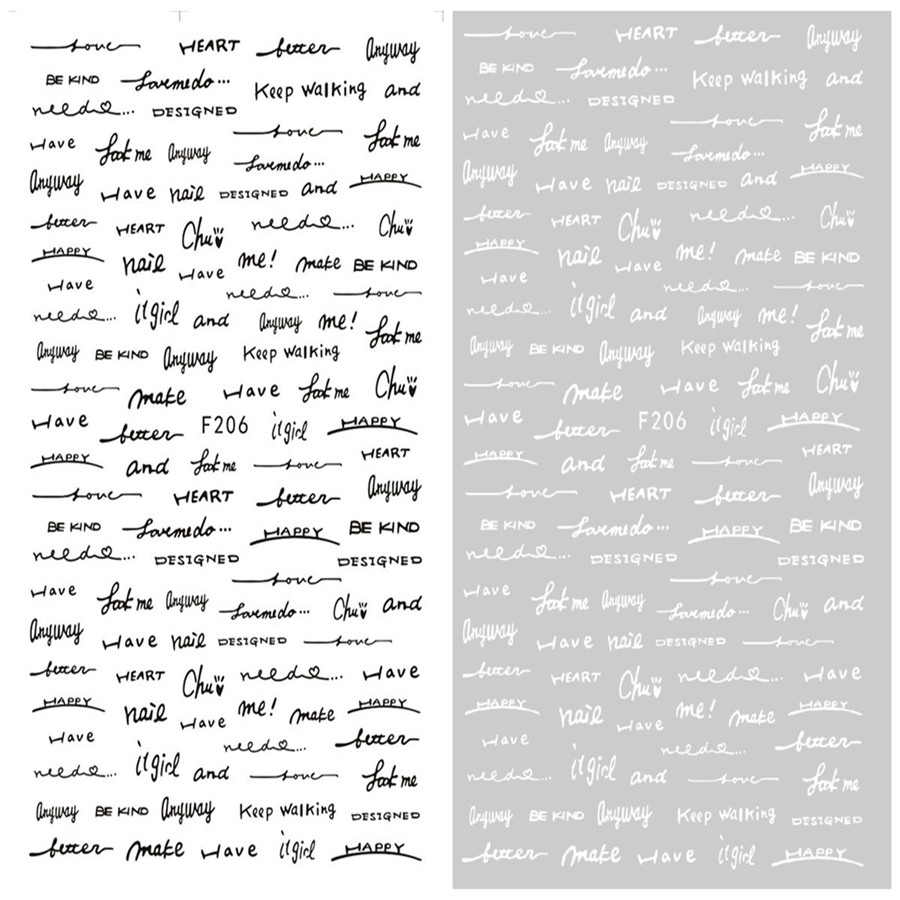 Love HEART better Anyway
BE KIND Lovemedo... Keep walking and
need... DESIGNED
Have Look me Anyway Love Look me
Lovemedo...
Anyway Have nail DESIGNED and HAPPY
better HEART Chu need... Chu
HAPPY nail Have me! make BE KIND
Have need... Love
need... it girl and Anyway me! Look me
Anyway BE KIND Anyway Keep walking
Love make Have Look me Chu
Have better F206 it girl HAPPY
HAPPY and Look me Love HEART
Love HEART better Anyway
BE KIND Lovemedo... HAPPY BE KIND
need... DESIGNED DESIGNED
Have Look me Anyway Love
Lovemedo... Chu and
Anyway Have nail DESIGNED Love
better HEART Chu need... Have
HAPPY nail Have me! make HAPPY
Have need... better
need... it girl and Love Look me
Anyway BE KIND Anyway Keep walking DESIGNED
better make Have it girl HAPPY
Love HEART better Anyway
BE KIND Lovemedo... Keep walking and
need... DESIGNED
Have Look me Anyway Love Look me
Lovemedo...
Anyway Have nail DESIGNED and HAPPY
better HEART Chu need... Chu
HAPPY nail Have me! make BE KIND
Have need... Love
need... it girl and Anyway me! Look me
Anyway BE KIND Anyway Keep walking
Love make Have Look me Chu
Have better F206 it girl HAPPY
HAPPY and Look me Love HEART
Love HEART better Anyway
BE KIND Lovemedo... HAPPY BE KIND
need... DESIGNED DESIGNED
Have Look me Anyway Love
Lovemedo... Chu and
Anyway Have nail DESIGNED Love
better HEART Chu need... Have
HAPPY nail Have me! make HAPPY
Have need... better
need... it girl and Love Look me
Anyway BE KIND Anyway Keep walking DESIGNED
better make Have it girl HAPPY